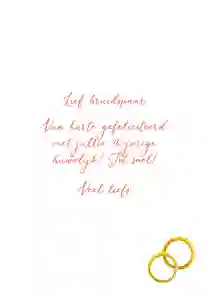 Lief bruidspaar
Van harte gefeliciteerd
met jullie jarige
huwelijk! Tot snel!
Veel liefs